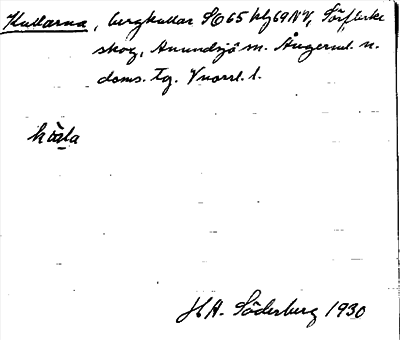 Kullarna, bergkullar SO65 blg69NV, Sörflärke
skog, Anundsjö sn. Ångerml. n.
doms. tg. Vnorrl. l.
H.A. Söderberg 1930